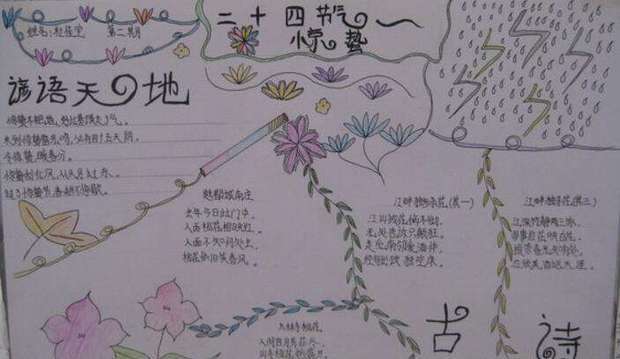 二十四节气
惊蛰
姓名:
第二期
谚语天地
惊蛰不耙地,好比蒸馍走了气。
未到惊蛰雷先鸣,必有四十五天阴。
冷惊蛰,暖春分。
惊蛰刮北风,从头另过冬。
过了惊蛰节,春耕不停歇。
题都城南庄
去年今日此门中,
人面桃花相映红。
人面不知何处去,
桃花依旧笑春风。
江畔独步寻花(其一)
江上被花恼不彻,
无处告诉只颠狂。
走觅南邻爱酒伴,
经旬出饮独空床。
江畔独步寻花(其三)
江深竹静两三家,
多事红花映白花。
报答春光知有处,
应须美酒送生涯。
大林寺桃花
人间四月芳菲尽,
山寺桃花始盛开
古诗